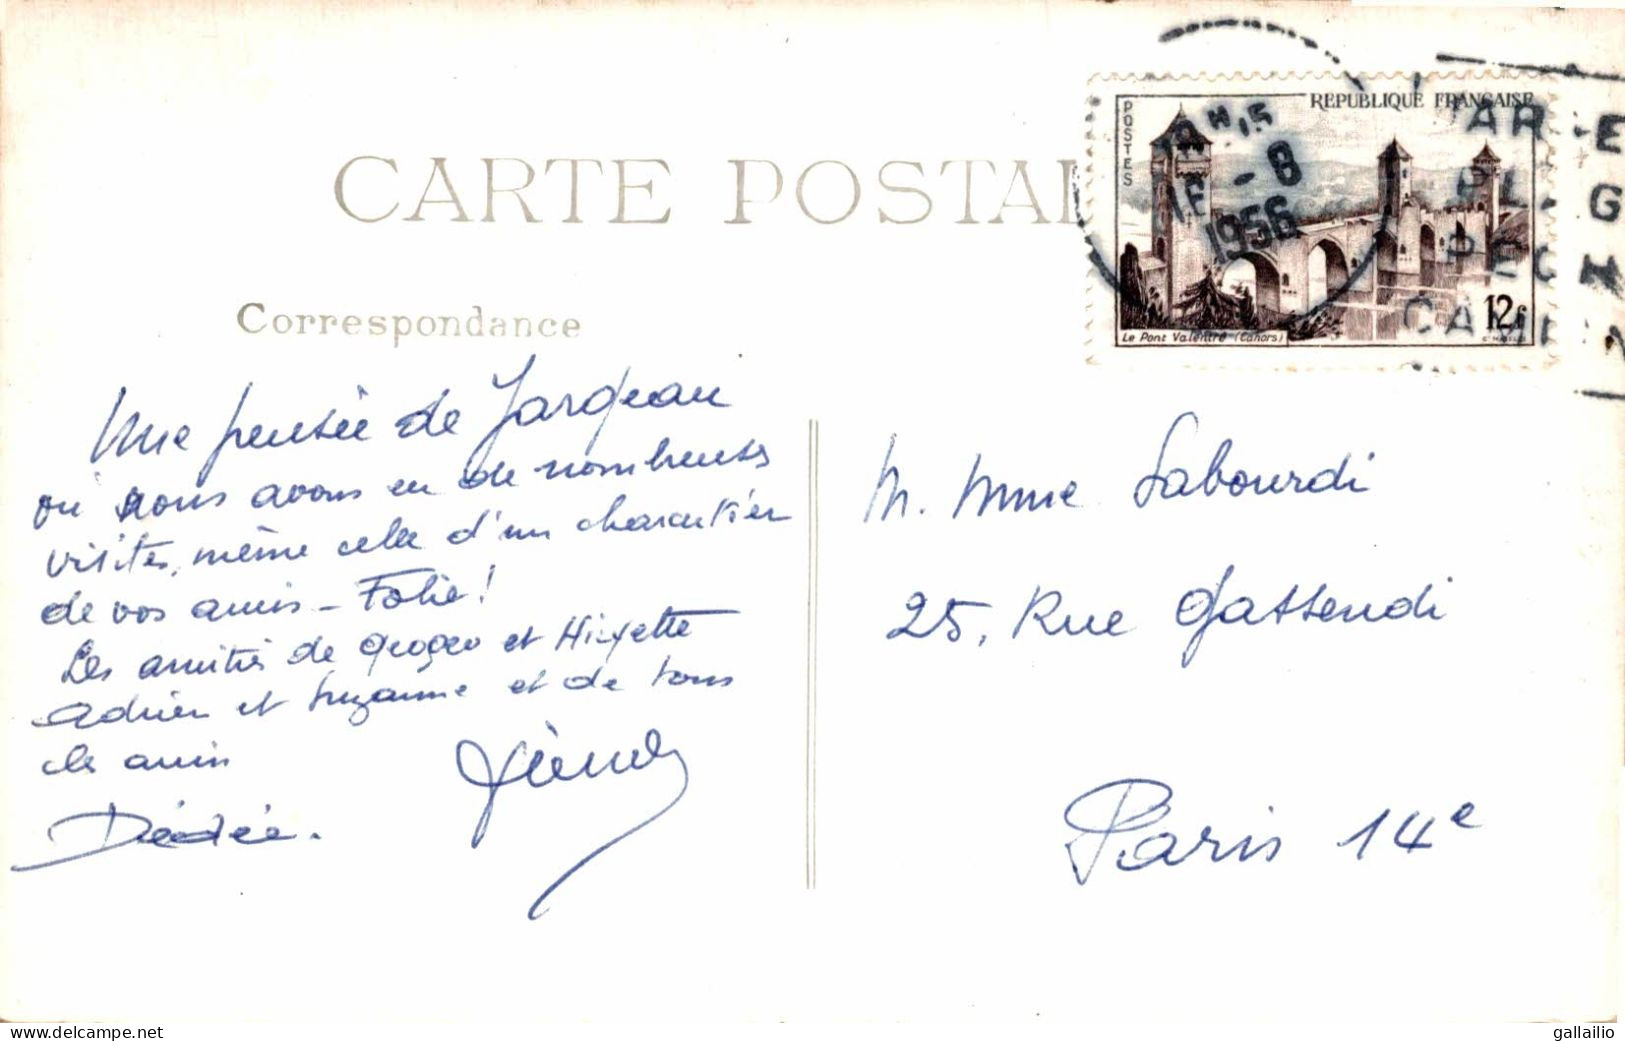 CARTE POSTAL
Correspondance
REPUBLIQUE FRANÇAISE
POSTES
12f
Le Pont Valentré (Cahors)
18H15
16-8
1956
JAR E
PLA G
PEC H
CAMPIN
Une pensée de Jargeau
où nous avons eu de nombreuses
visites, même celle d'un charcutier
de vos amis - Folie!
Les amitiés de et
Adrien et Suzanne et de tous
les amis
Dédée.
M. Mme Sabourdi
25, Rue Gassendi
Paris 14e
www.delcampe.net
gallailio